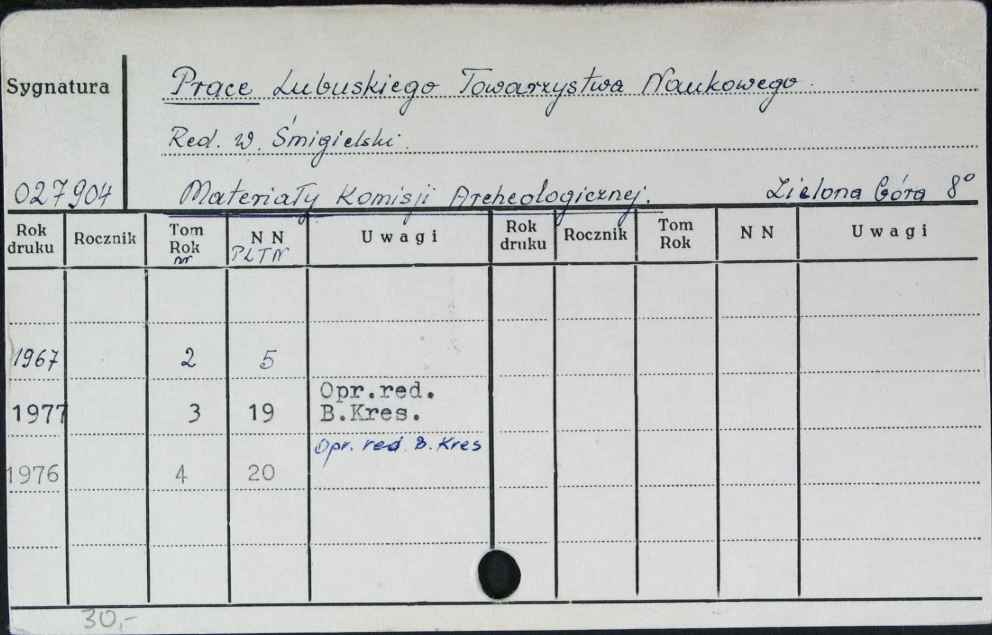 Sygnatura
Prace Lubuskiego Towarzystwa Naukowego.
Red. W. Śmigielski.
027904 Materiały Komisji Archeologicznej. Zielona Góra 8°
Rok druku Rocznik Tom Rok nr NN PLTN Uwagi Rok druku Rocznik Tom Rok NN Uwagi
1967 2 5
Opr.red.
1977 3 19 B.Kres.
Opr. red B. Kres
1976 4 20
30,-